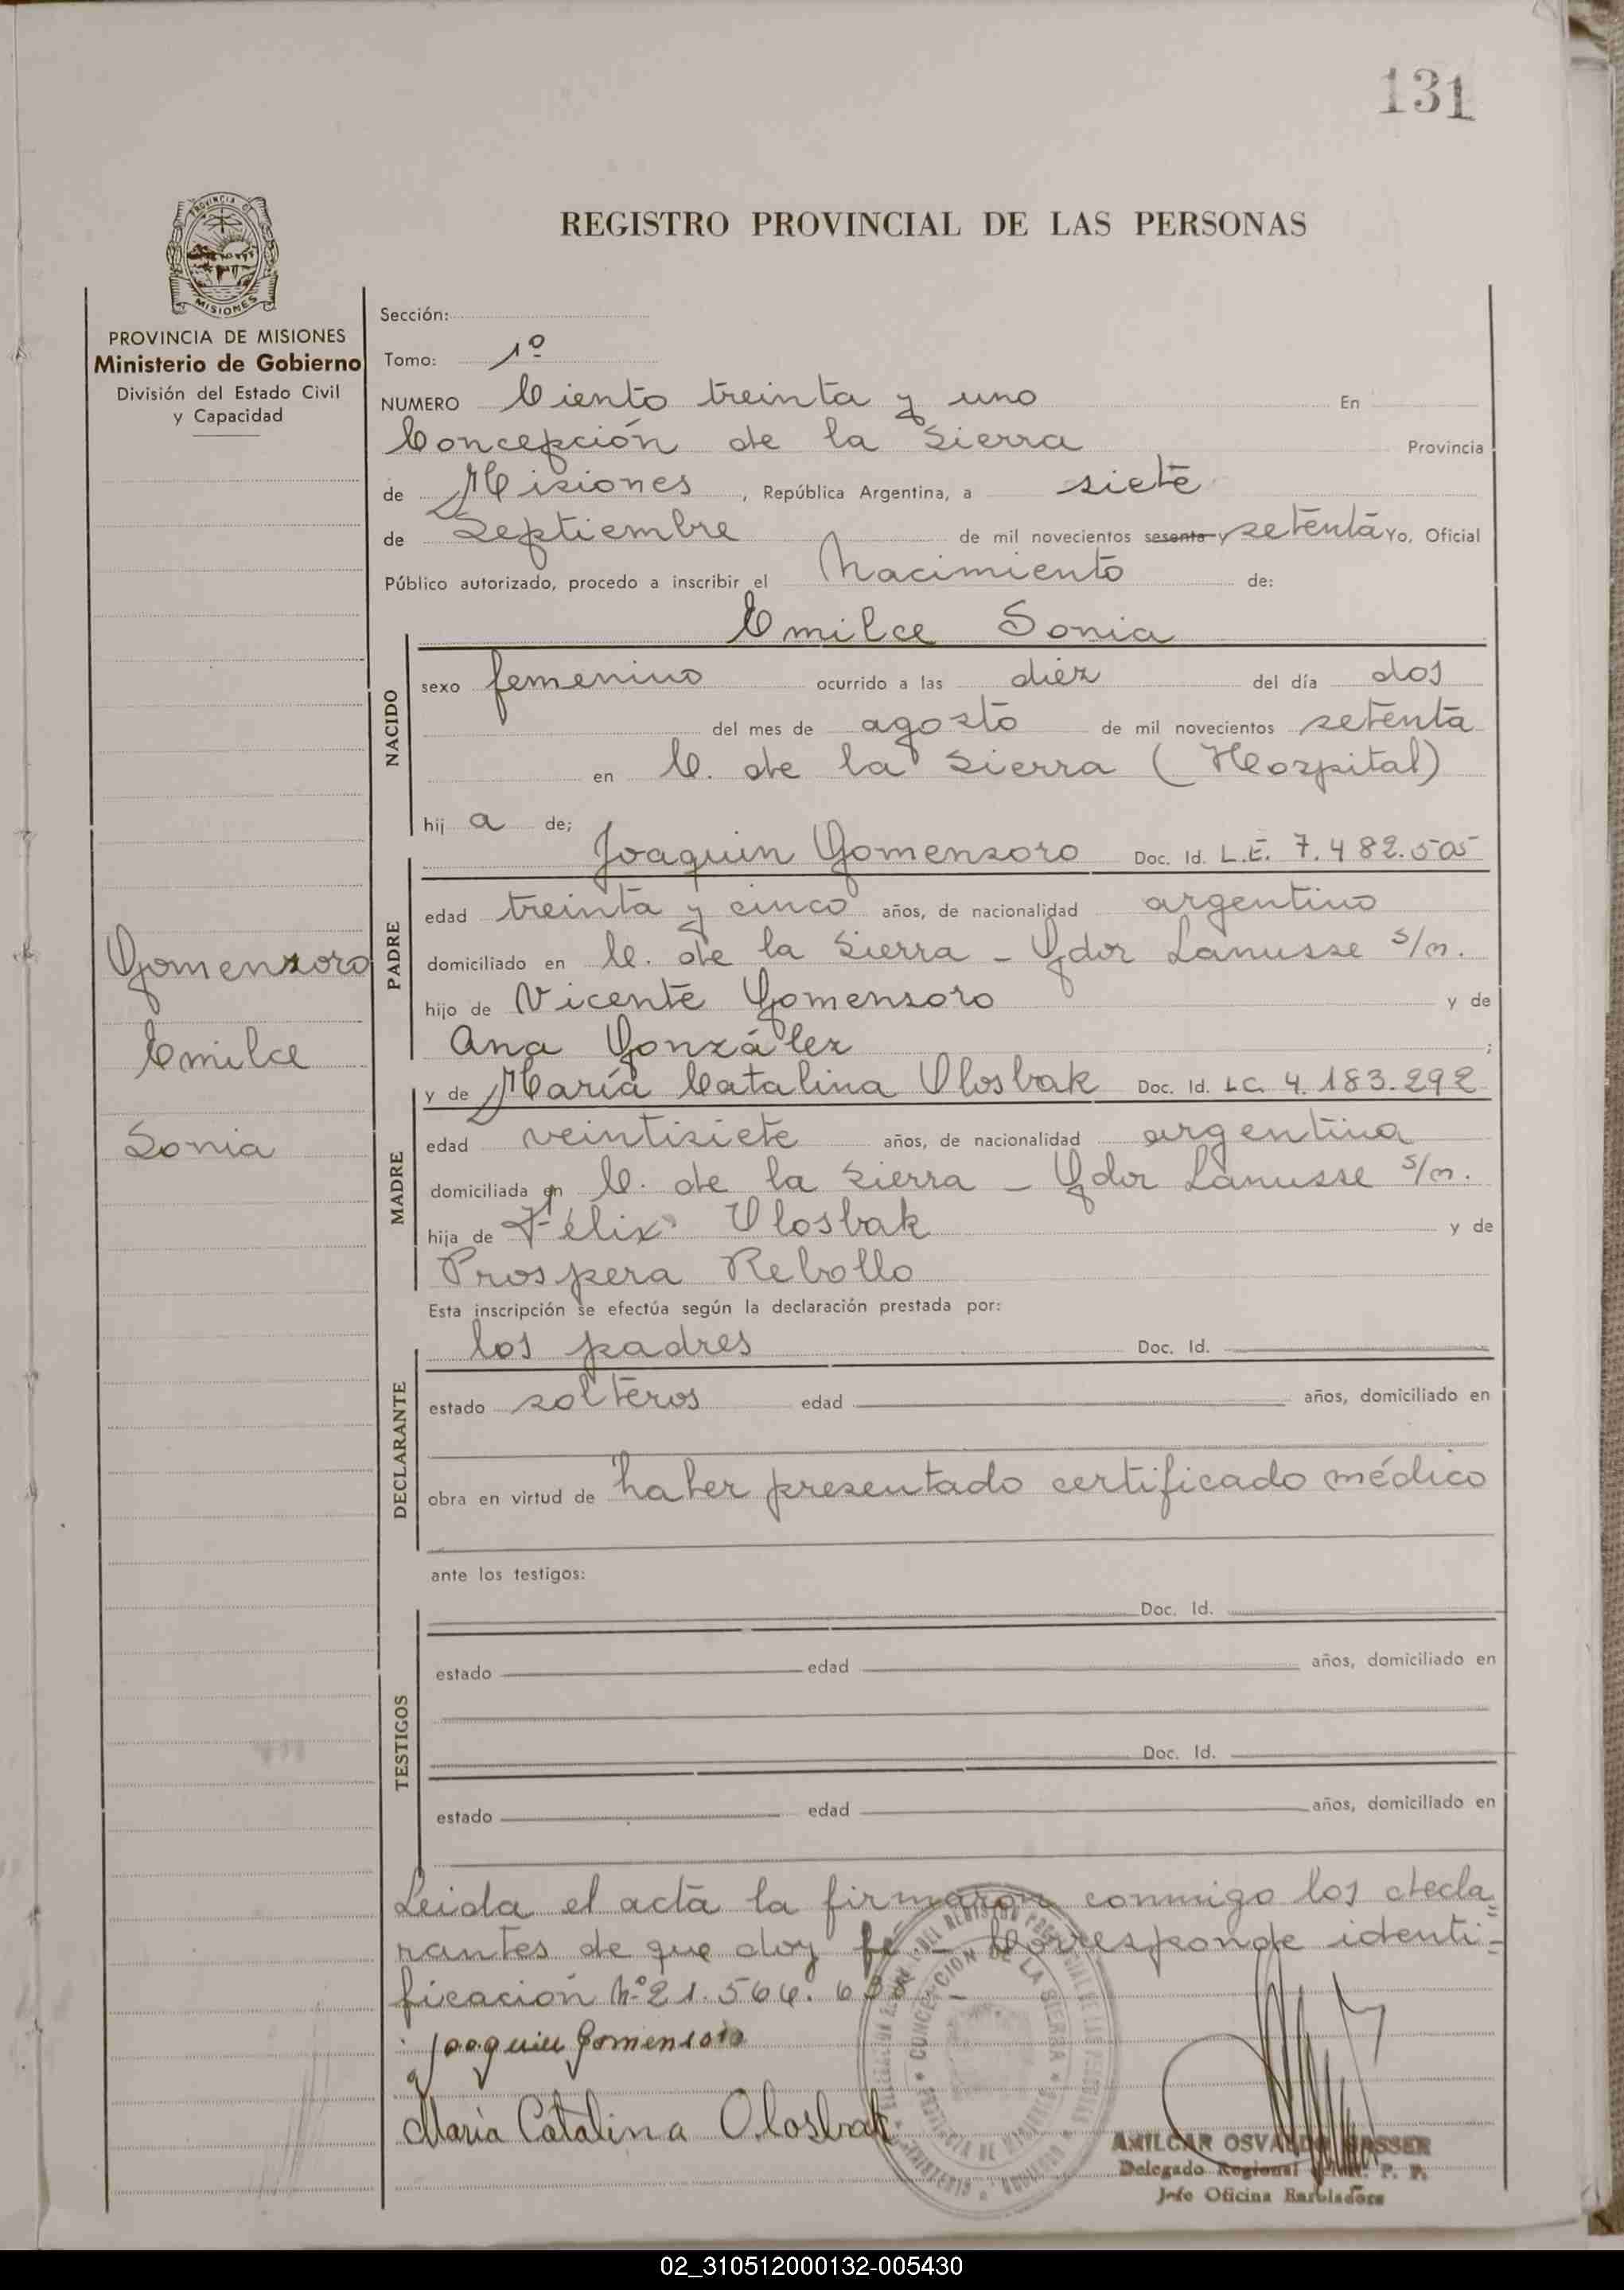 131
REGISTRO PROVINCIAL DE LAS PERSONAS
PROVINCIA DE
MISIONES
PROVINCIA DE MISIONES
Ministerio de Gobierno
División del Estado Civil
y Capacidad
Sección:
Tomo: 1º
NUMERO Ciento treinta y uno En
Concepción de la Sierra Provincia
de Misiones, República Argentina, a siete
de Septiembre de mil novecientos sesenta y setenta Yo, Oficial
Público autorizado, procedo a inscribir el Nacimiento de:
Emilce Sonia
NACIDO
sexo femenino ocurrido a las diez del día dos
del mes de agosto de mil novecientos setenta
en C. de la Sierra (Hospital)
hij a de;
Joaquin Gomensoro Doc. Id. L.E. 7.482.505
PADRE
edad treinta y cinco años, de nacionalidad argentino
domiciliado en C. de la Sierra - Gdor Lanusse s/n.
hijo de Vicente Gomensoro y de
Ana González ;
Gomensoro
Emilce
Sonia
y de María Catalina Olosbak Doc. Id. L.C. 4.183.292
MADRE
edad veintisiete años, de nacionalidad argentina
domiciliada en C. de la Sierra - Gdor Lanusse s/n.
hija de Félix Olosbak y de
Prospera Rebollo
Esta inscripción se efectúa según la declaración prestada por:
DECLARANTE
los padres Doc. Id.
estado solteros edad años, domiciliado en
obra en virtud de haber presentado certificado médico
ante los testigos:
TESTIGOS
Doc. Id.
estado edad años, domiciliado en
Doc. Id.
estado edad años, domiciliado en
Leida el acta la firmaron conmigo los decla=
rantes de que doy fé. - Corresponde identi=
ficación Nº 21.564.
Joaquin Gomensoro
María Catalina Olosbak
CONCEPCION DE LA SIERRA
AMILCAR OSVALDO
Delegado Regional
Jefe Oficina
02_310512000132-005430